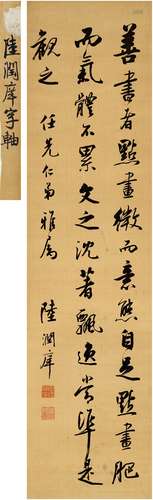 善書者點畫微而意態自足點畫肥
而氣體不累文之沈著飄逸當準是
觀之 任先仁弟雅屬
陸潤庠
陸潤庠字軸